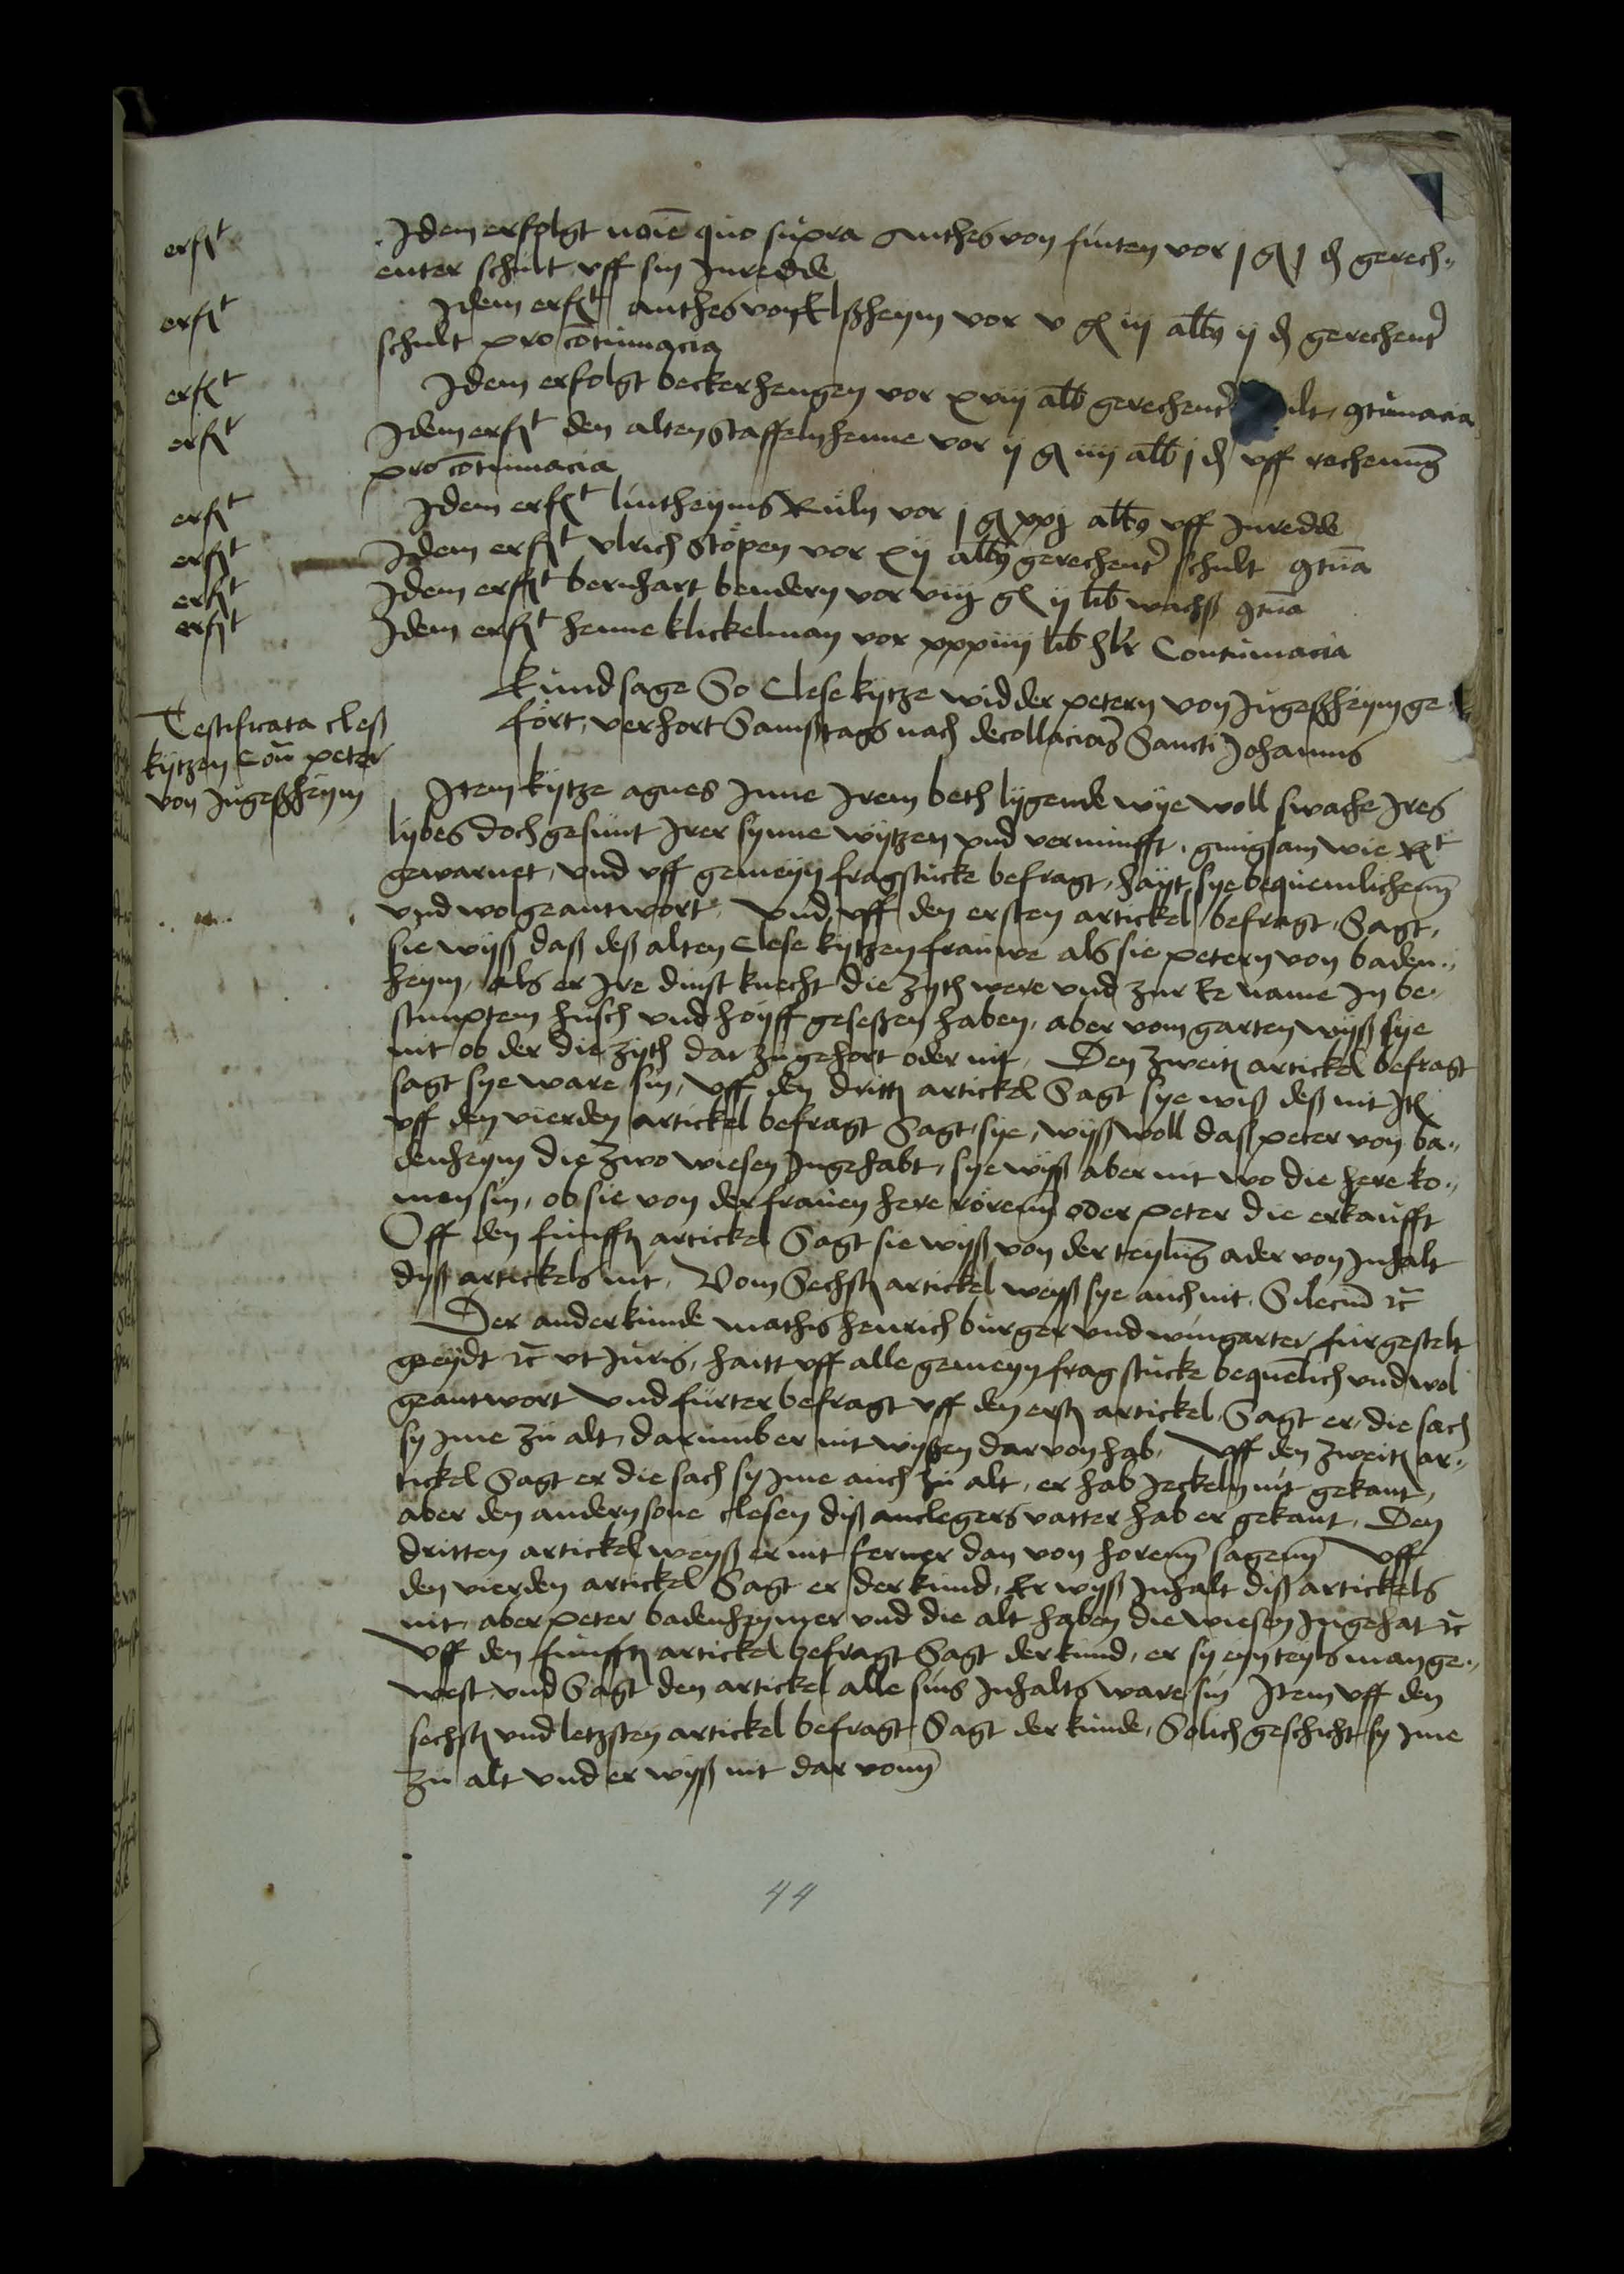 erfſt Idem erfolgt noīe quo supra Anthes von finten vor j gl j ₰ gerech„
enter schult uff sin Inredde
erfſt Idem erfſt anthes von Elßheym vor v gl iij albg ij ₰ gerechent
schult pro cōtumacia
erfſt Idem erfolgt beckerhengen vor xviij alb gerechent ult, ꝯtumacia
erfſt Idem erfſt den alten Staffelnhenne vor ij gl iiij alb j ₰ uff rechenūg
pro cōtumacia
erfſt Idem erfſt lintheyms Ruln vor j gl xxj albg uff Inredde
erfſt Idem erfſt Ulrich Stopen vor xij albg gerechent schult ꝯtūa
erfſt Idem erfſt bernhart bendern vor viij gl ij lib wachß ꝯtūa
erfſt Idem erfſt henne klickelman vor xxxiiij lib hlr Contumacia
Kundsage So Clese kytze widder petern von Jugeßheym ge„
fort, verhort Samßtags nach decollacionis Sancti Johannis
Testificata cleß
kytzen Coū peter
von Jugeßheym
Item kytze agnes Inne Irem beth lygende wye woll swache Ires
lybes doch gesunt Irer synne wytzen und vernunfft, gnugsam wie Rt
gewarnet, und uff gemeyn fragstucke befragt, hayt sye bequemlichenn
und wo geantwort, Und uff den ersten artickel befragt, Sagt,
sie wyß daß deß alten Clese kytzen frauwe als sie petern von baden„
heym, als er Ire dinst knecht die zyth were und zur ke name In be„
stimptem husch und hoyff geseßen haben, aber vom garten wyß sye
nit ob der die zyth dar zu gehort oder nit, Den zweitn artickel befragt
sagt sye ware sin, Uff den drittn artickel Sagt sye wiß deß nit Itē
uff den vierden artickel befragt Sagt sye, wyß woll daß peter von ba„
denheym die zwo wiesen Ingehabt, sye wyß aber nit wo die here ko„
men sin, ob sie von der frauen here rorenn oder peter die erkaufft
Off den funfftn artickel Sagt sie wyß von der teylūg ader von Inhalt
dyß artickels nit, Vom Sechstn artickel weyß sye auch nit, Silecīū ꝛc̄
Der ander kunde mathis henrich burger und wingarter furgestelt
geeydt ꝛc̄ ut Juris, haitt uff alle gemeyn fragstucke bequēlich und wol
geantwort Und furter befragt uff den erstn artickel, Sagt er, die sach
sy Ime zu alt, darumb er nit wyßen darvon hab, Uff den zweitn ar„
tickel Sagt er die sach sy Ime auch zu alt, er hab Jeckeln nit gekant,
aber den andern sone clesen diß anclegers vatter hab er gekant, Den
dritten artickel weyß er nit ferner dan von horenn sagenn Uff
den vierden artickel Sagt er der kund, Er wyß Inhalt diß artickels
nit, aber peter badenheymer und die alt haben die wiesen Ingehat ꝛc̄
Uff den funfftn artickel befragt Sagt der kund, er sy eyn teyls man ge„
west, und Sagt den artickel alle sins Inhalts ware sin Item uff den
sechstn und letzsten artickel befragt Sagt der kunde, Solich geschicht sy Ime
zu alt und er wyß nit dar vonn
44